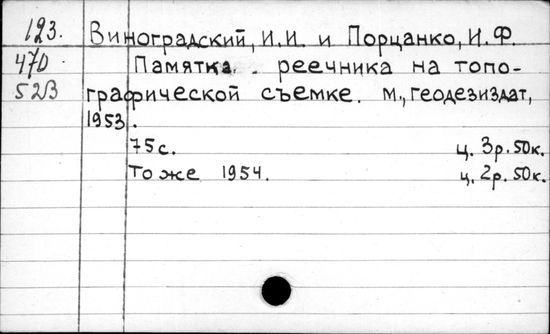 123. Виноградский, И.И. и Порцанко, И.Ф.
47D Памятка реечника на топо-
52B графической съемке. М., Геодезиздат,
1953.
75с. ц. 3р. 50к.
То же 1954. ц. 2р. 50к.